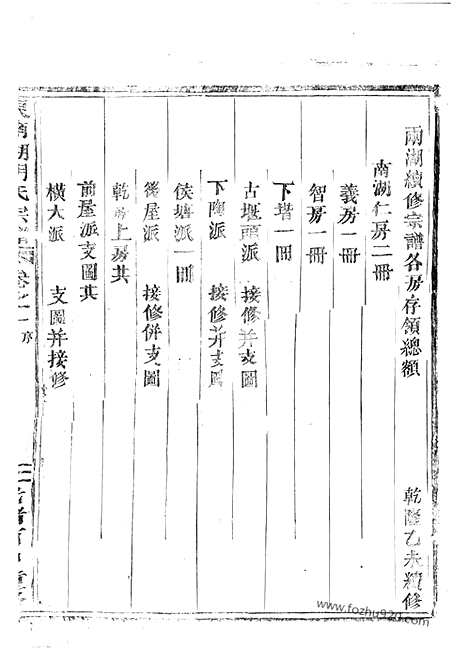 兩湖續修宗譜各房存領總額　乾隆乙未續修
南湖仁房二冊
義房一冊
智房一冊
下堦一冊
古堰頭派　接修并支圖
下陶派　接修并支圖
侯塘派一冊
後屋派　接修併支圖
上房共
前屋派支圖共
橫大派　支圖并接修
南湖胡氏宗譜 卷之一 序
www.fozhu920.com